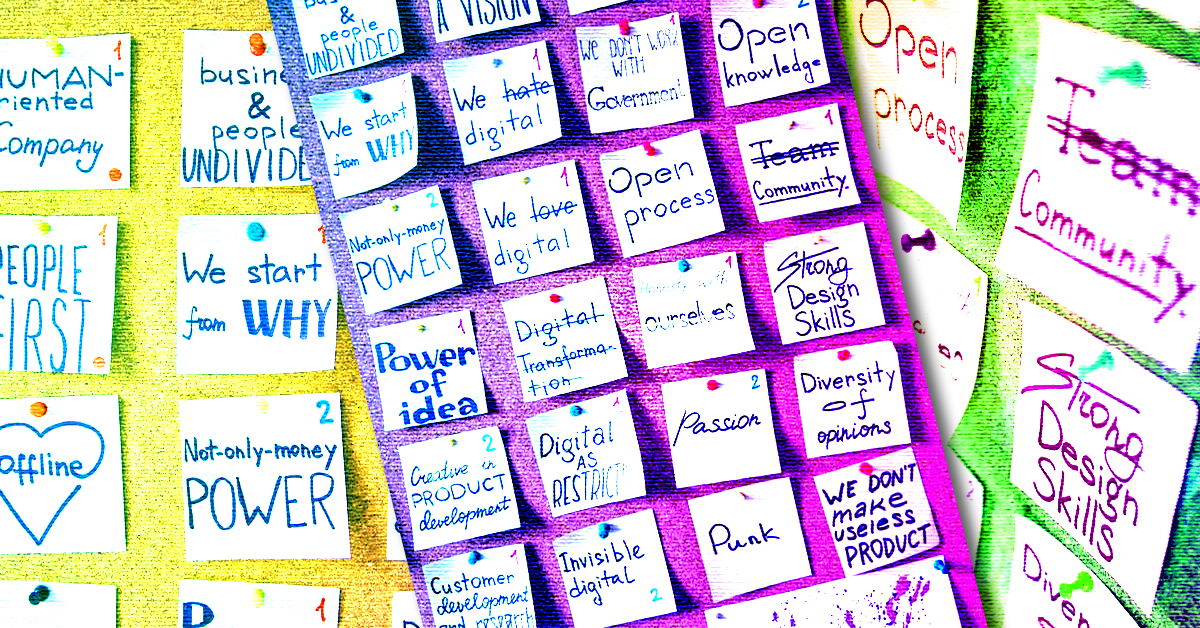 HUMAN-
riented
Company
1
PEOPLE
FIRST
1
offline
busine
&
people
UNDIVIDE
We start
from WHY
1
Not-only-money
POWER
2
P
1
&
people
UNDIVIDED
We start
from WHY
Not-only-money
POWER
2
Power
of
idea
1
Creative in
PRODUCT
development
2
Customer
development
and research
1
A VISION
We hate
digital
1
We love
digital
1
Digital
Transforma-
tion
Digital
AS
RESTRICT
1
Invisible
digital
2
We DON'T WORK
WITH
Government
1
Open
process
Honesty with
ourselves
1
Passion
2
Punk
Open
knowledge
2
Team
Community.
1
Strong
Design
Skills
Diversity
of
opinions
WE DON'T
make
useless
PRODUCT
Open
process
Team
Community.
Strong
Design
Skills
Diver